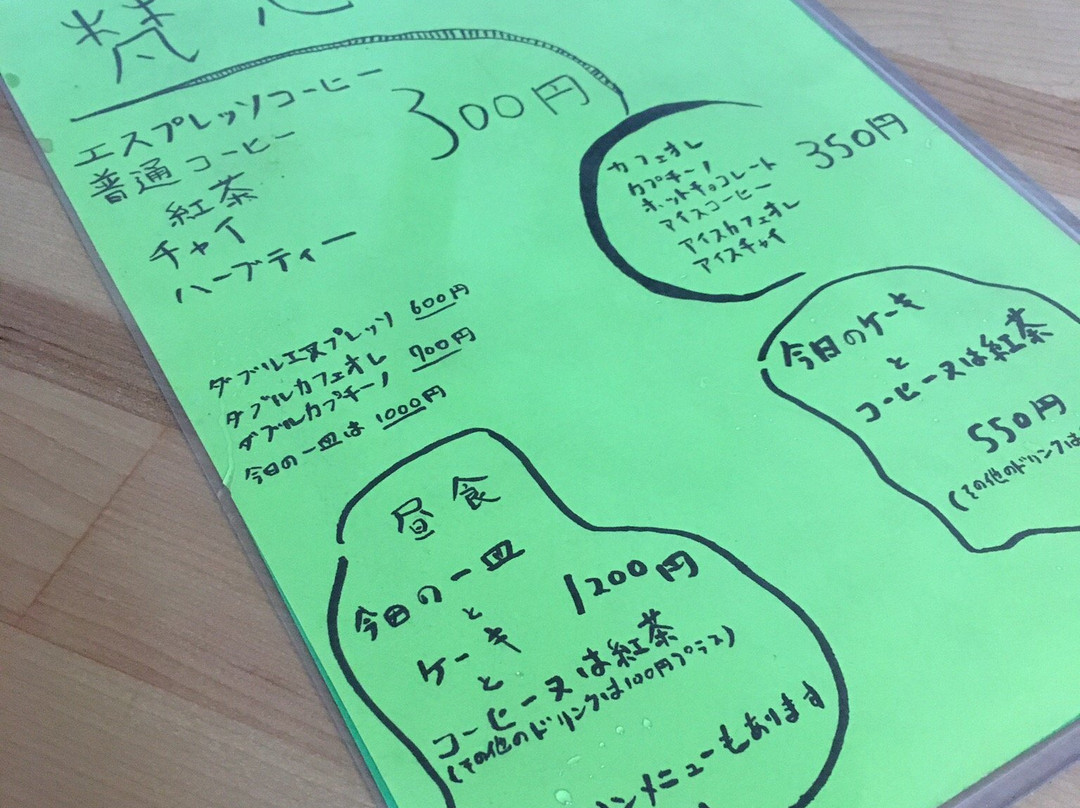 エスプレッソコーヒー
普通コーヒー
紅茶
チャイ
ハーブティー
300円
カフェオレ
カプチーノ
ホットチョコレート
アイスコーヒー
アイスカフェオレ
アイスチャイ
350円
ダブルエスプレッソ 600円
ダブルカフェオレ
ダブルカプチーノ 700円
今日の一皿は 1000円
今日のケーキ
と
コーヒー又は紅茶
550円
(その他のドリンクは
昼食
今日の一皿
と
ケーキ
と
コーヒー又は紅茶
1200円
(その他のドリンクは100円プラス)
ンメニューもあります